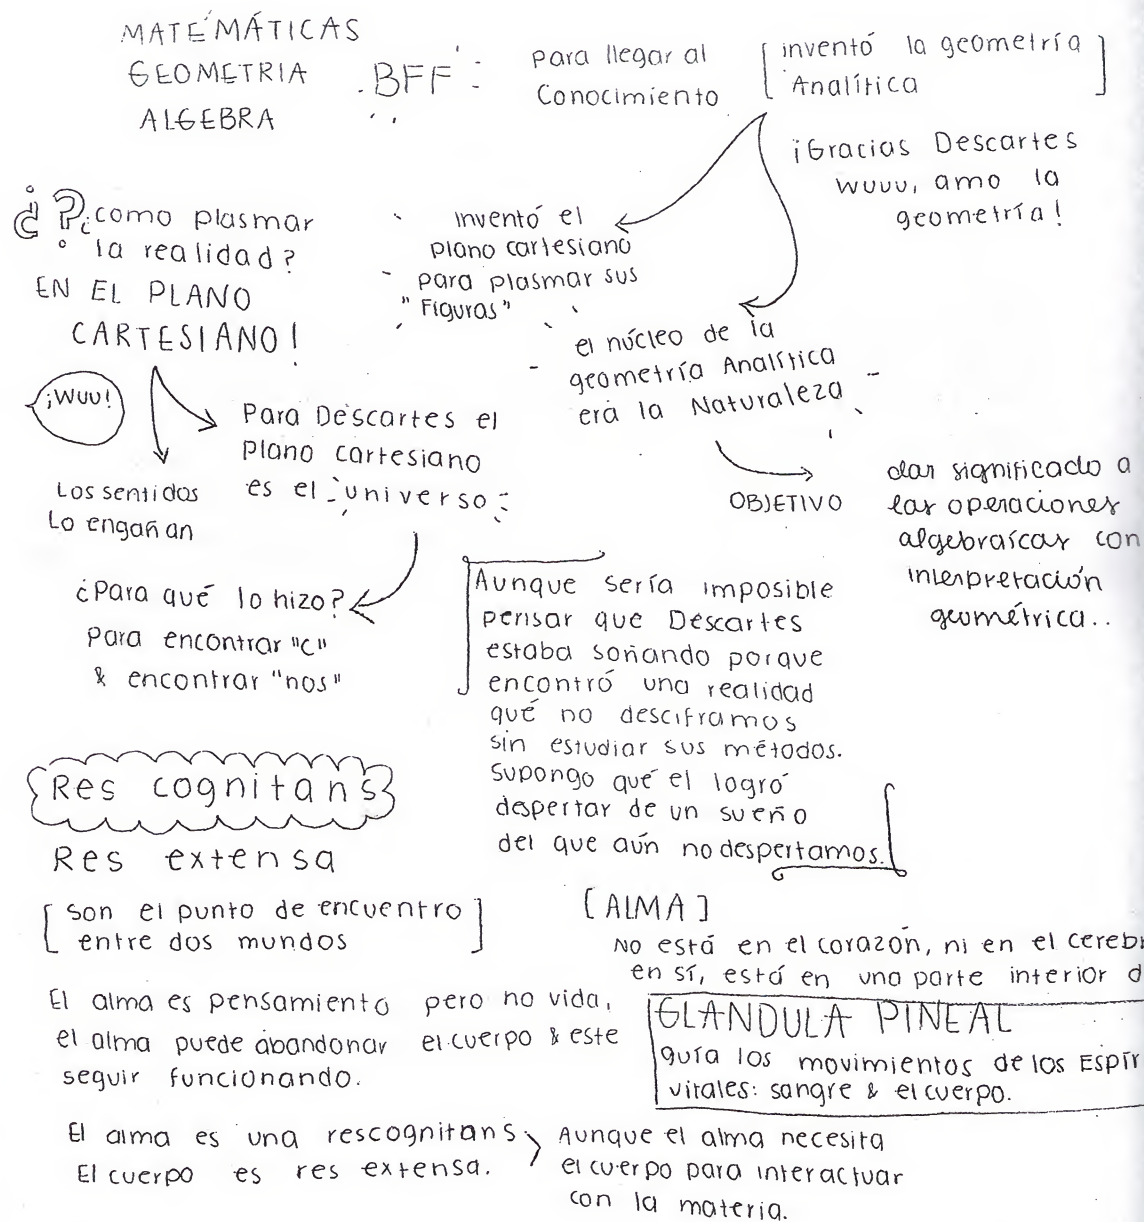 MATEMÁTICAS
GEOMETRIA
ALGEBRA
BFF
para llegar al
Conocimiento
[inventó la geometría
Analítica]
¡Gracias Descartes
wuuu, amo la
geometría!
¿?¿como plasmar
la realidad?
EN EL PLANO
CARTESIANO!
inventó el
plano cartesiano
para plasmar sus
"Figuras"
el núcleo de la
geometría Analítica
era la Naturaleza
¡Wuu!
Para Descartes el
plano cartesiano
es el universo
Los sentidos
Lo engañan
OBJETIVO
dar significado a
las operaciones
algebraícas con
interpretación
geométrica..
¿Para qué lo hizo?
Para encontrar "c"
& encontrar "nos"
Aunque sería imposible
pensar que Descartes
estaba soñando porque
encontró una realidad
qué no desciframos
sin estudiar sus métodos.
Supongo qué el logró
despertar de un sueño
del que aún no despertamos.
Res cognitans
Res extensa
[son el punto de encuentro
entre dos mundos]
El alma es pensamiento pero no vida,
el alma puede abandonar el cuerpo & este
seguir funcionando.
[ALMA]
No está en el corazón, ni en el cereb
en sí, está en una parte interior d
GLANDULA PINEAL
guía los movimientos de los Espír
vitales: sangre & el cuerpo.
El alma es una rescognitans
El cuerpo es res extensa.
Aunque el alma necesita
el cuerpo para interactuar
con la materia.